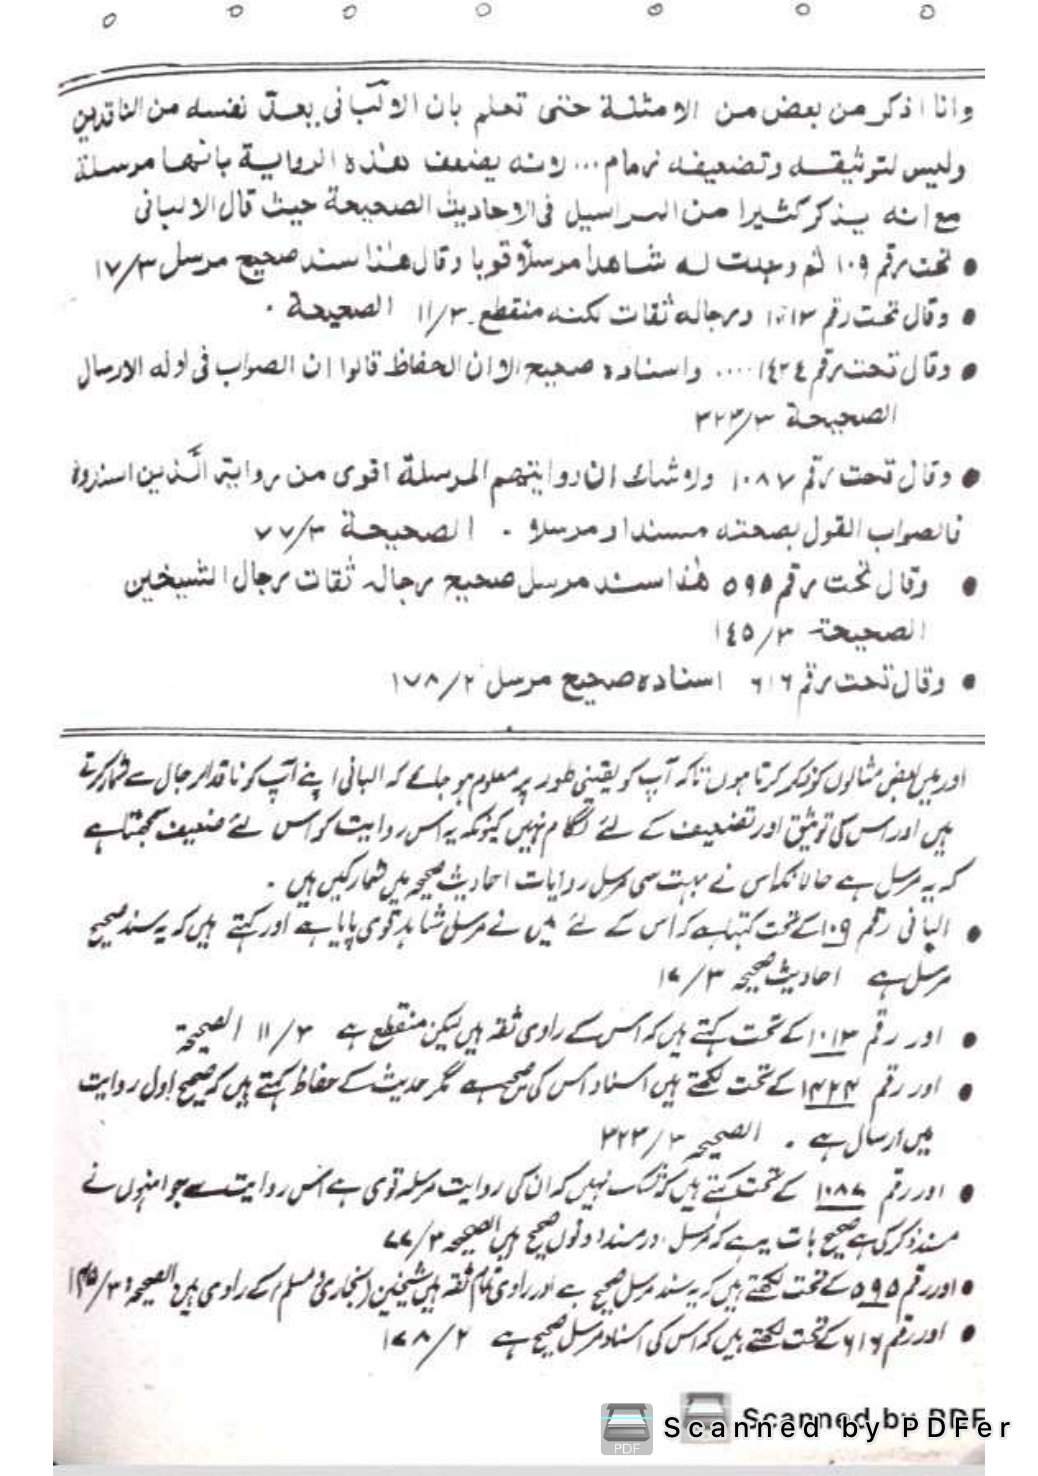 وانا اذكر من بعض من الامثلة حتى تعلم بان الالبانى يعد نفسه من الناقدين
وليس لتوثيقه وتضعيفه زمام... لانه يضعف هذه الرواية بانها مرسلة
مع انه يذكر كثيرا من المراسيل فى الاحاديث الصحيحة حيث قال الالبانى
• تحت رقم ١٠٩ ثم وجدت له شاهدا مرسلا قويا وقال هذا سند صحيح مرسل ١٧/٣
• وقال تحت رقم ١٠١٣ ورجاله ثقات لكنه منقطع. ١١/٣ الصحيحة .
• وقال تحت رقم ١٤٢٤ .... واسناده صحيح الا ان الحفاظ قالوا ان الصواب فى اوله الارسال
الصحيحة ٣٢٣/٣
• وقال تحت رقم ١٠٨٧ ولا شك ان روايتهم المرسلة اقوى من رواية الذين اسندوه
فالصواب القول بصحته مسندا ومرسلا . الصحيحة ٧٧/٣
• وقال تحت رقم ٥٩٥ هذا سند مرسل صحيح رجاله ثقات رجال الشيخين
الصحيحة ١٤٥/٣
• وقال تحت رقم ٦١٦ اسناده صحيح مرسل ١٧٨/٢
اور میں بعض مثالوں کو ذکر کرتا ہوں تاکہ آپ کو یقینی طور پر معلوم ہو جائے کہ البانی اپنے آپ کو ناقد الرجال سے شمار کرتے
ہیں اور اس کی توثیق اور تضعیف کے لئے لگام نہیں کیونکہ یہ اس روایت کو اس لئے ضعیف سمجھتا ہے
کہ یہ مرسل ہے حالانکہ اس نے بہت سی مرسل روایات احادیث صحیحہ میں شمار کیں ہیں .
• البانی رقم ۱۰۹ کے تحت کہتا ہے کہ اس کے لئے میں نے مرسل شاہد قوی پایا ہے اور کہتے ہیں کہ یہ سند صحیح
مرسل ہے احادیث صحیحہ ۱۷/۳
• اور رقم ۱۰۱۳ کے تحت کہتے ہیں کہ اس کے راوی ثقہ ہیں لیکن منقطع ہے ۱۱/۳ الصحیحۃ
• اور رقم ۱۴۲۴ کے تحت لکھتے ہیں اسناد اس کی صحیح ہے مگر حدیث کے حفاظ کہتے ہیں کہ صحیح اول روایت
میں ارسال ہے . الصحیحہ ۳۲۳/۳
• اور رقم ۱۰۸۷ کے تحت کہتے ہیں کہ شک نہیں کہ ان کی روایت مرسلہ قوی ہے اس روایت سے جو انہوں نے
مسند ذکر کی ہے صحیح بات یہ ہے کہ مرسل اور مسند دونوں صحیح ہیں الصحیحہ ۷۷/۳
• اور رقم ۵۹۵ کے تحت لکھتے ہیں کہ یہ سند مرسل صحیح ہے اور راوی تمام ثقہ ہیں شیخین (بخاری و مسلم) کے راوی ہیں الصحیحہ ۱۴۵/۳
• اور رقم ۶۱۶ کے تحت لکھتے ہیں کہ اس کی اسناد مرسل صحیح ہے ۱۷۸/۲
Scanned by PDFer
Scanned by PDF
PDF